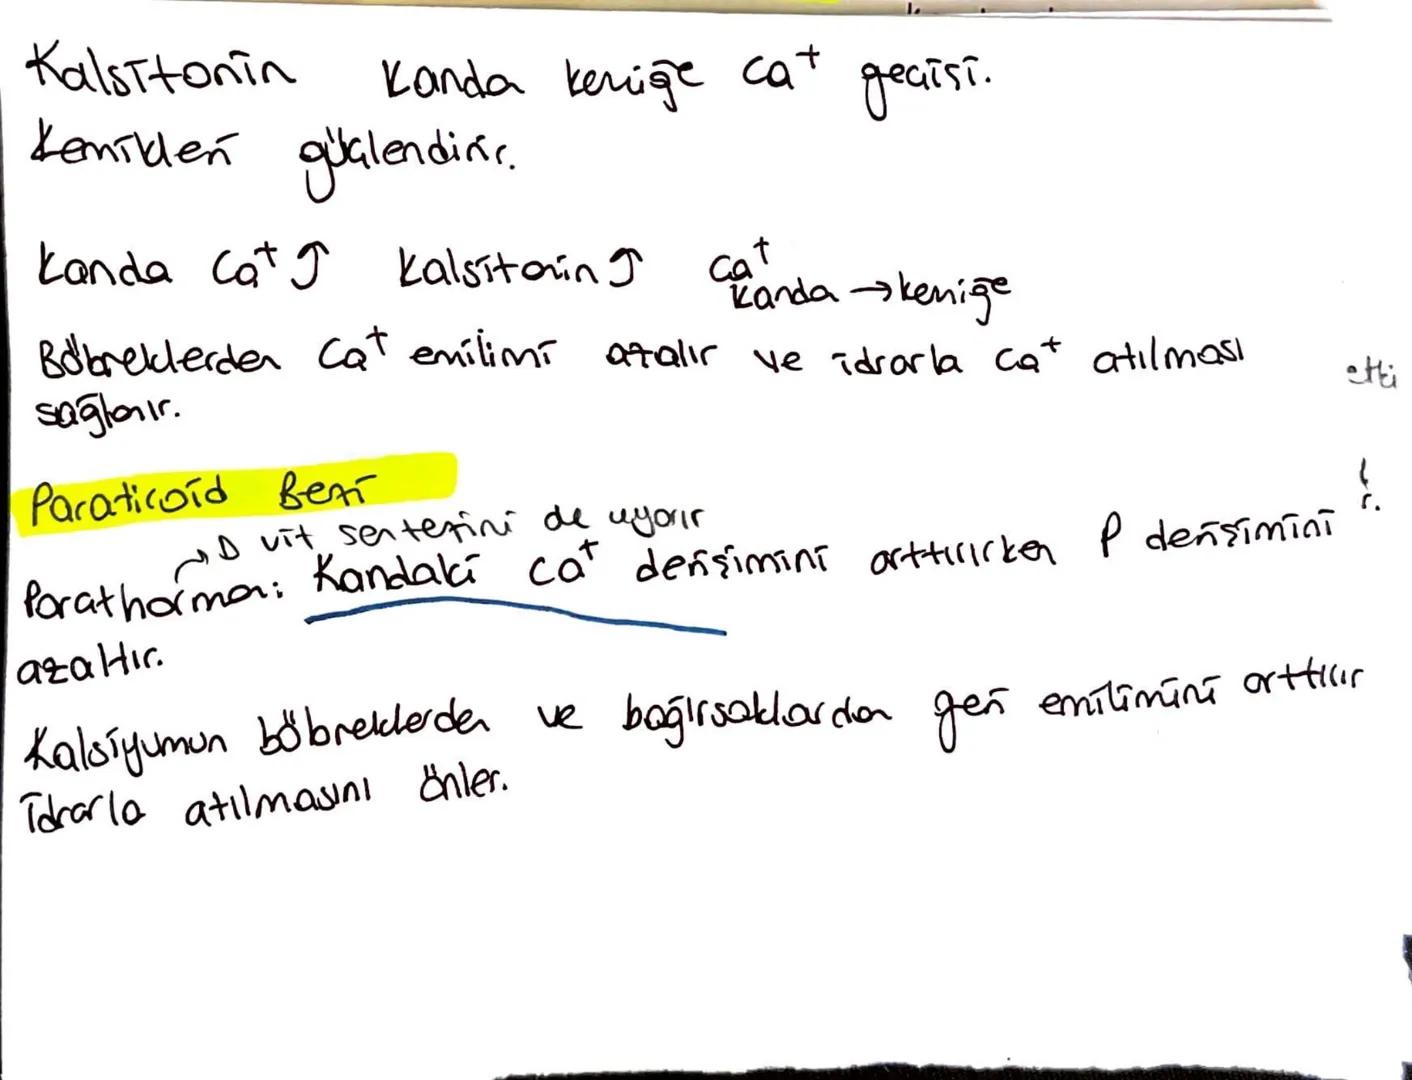 Kalsitonin Kanda kemiğe Ca⁺ geçişi.
Kemikleri güçlendirir.
Kanda Ca⁺ ↑ Kalsitonin ↑ Ca⁺ Kanda → kemiğe
Böbreklerden Ca⁺ emilimi azalır ve idrarla Ca⁺ atılması
sağlanır.
etti
Paratiroid Bezi
→ D vit sentezini de uyarır
Parathormon: Kandaki Ca⁺ derişimini arttırırken P derişimini
r.
azaltır.
Kalsiyumun böbreklerden ve bağırsaklardan geri emilimini arttırır
idrarla atılmasını önler.